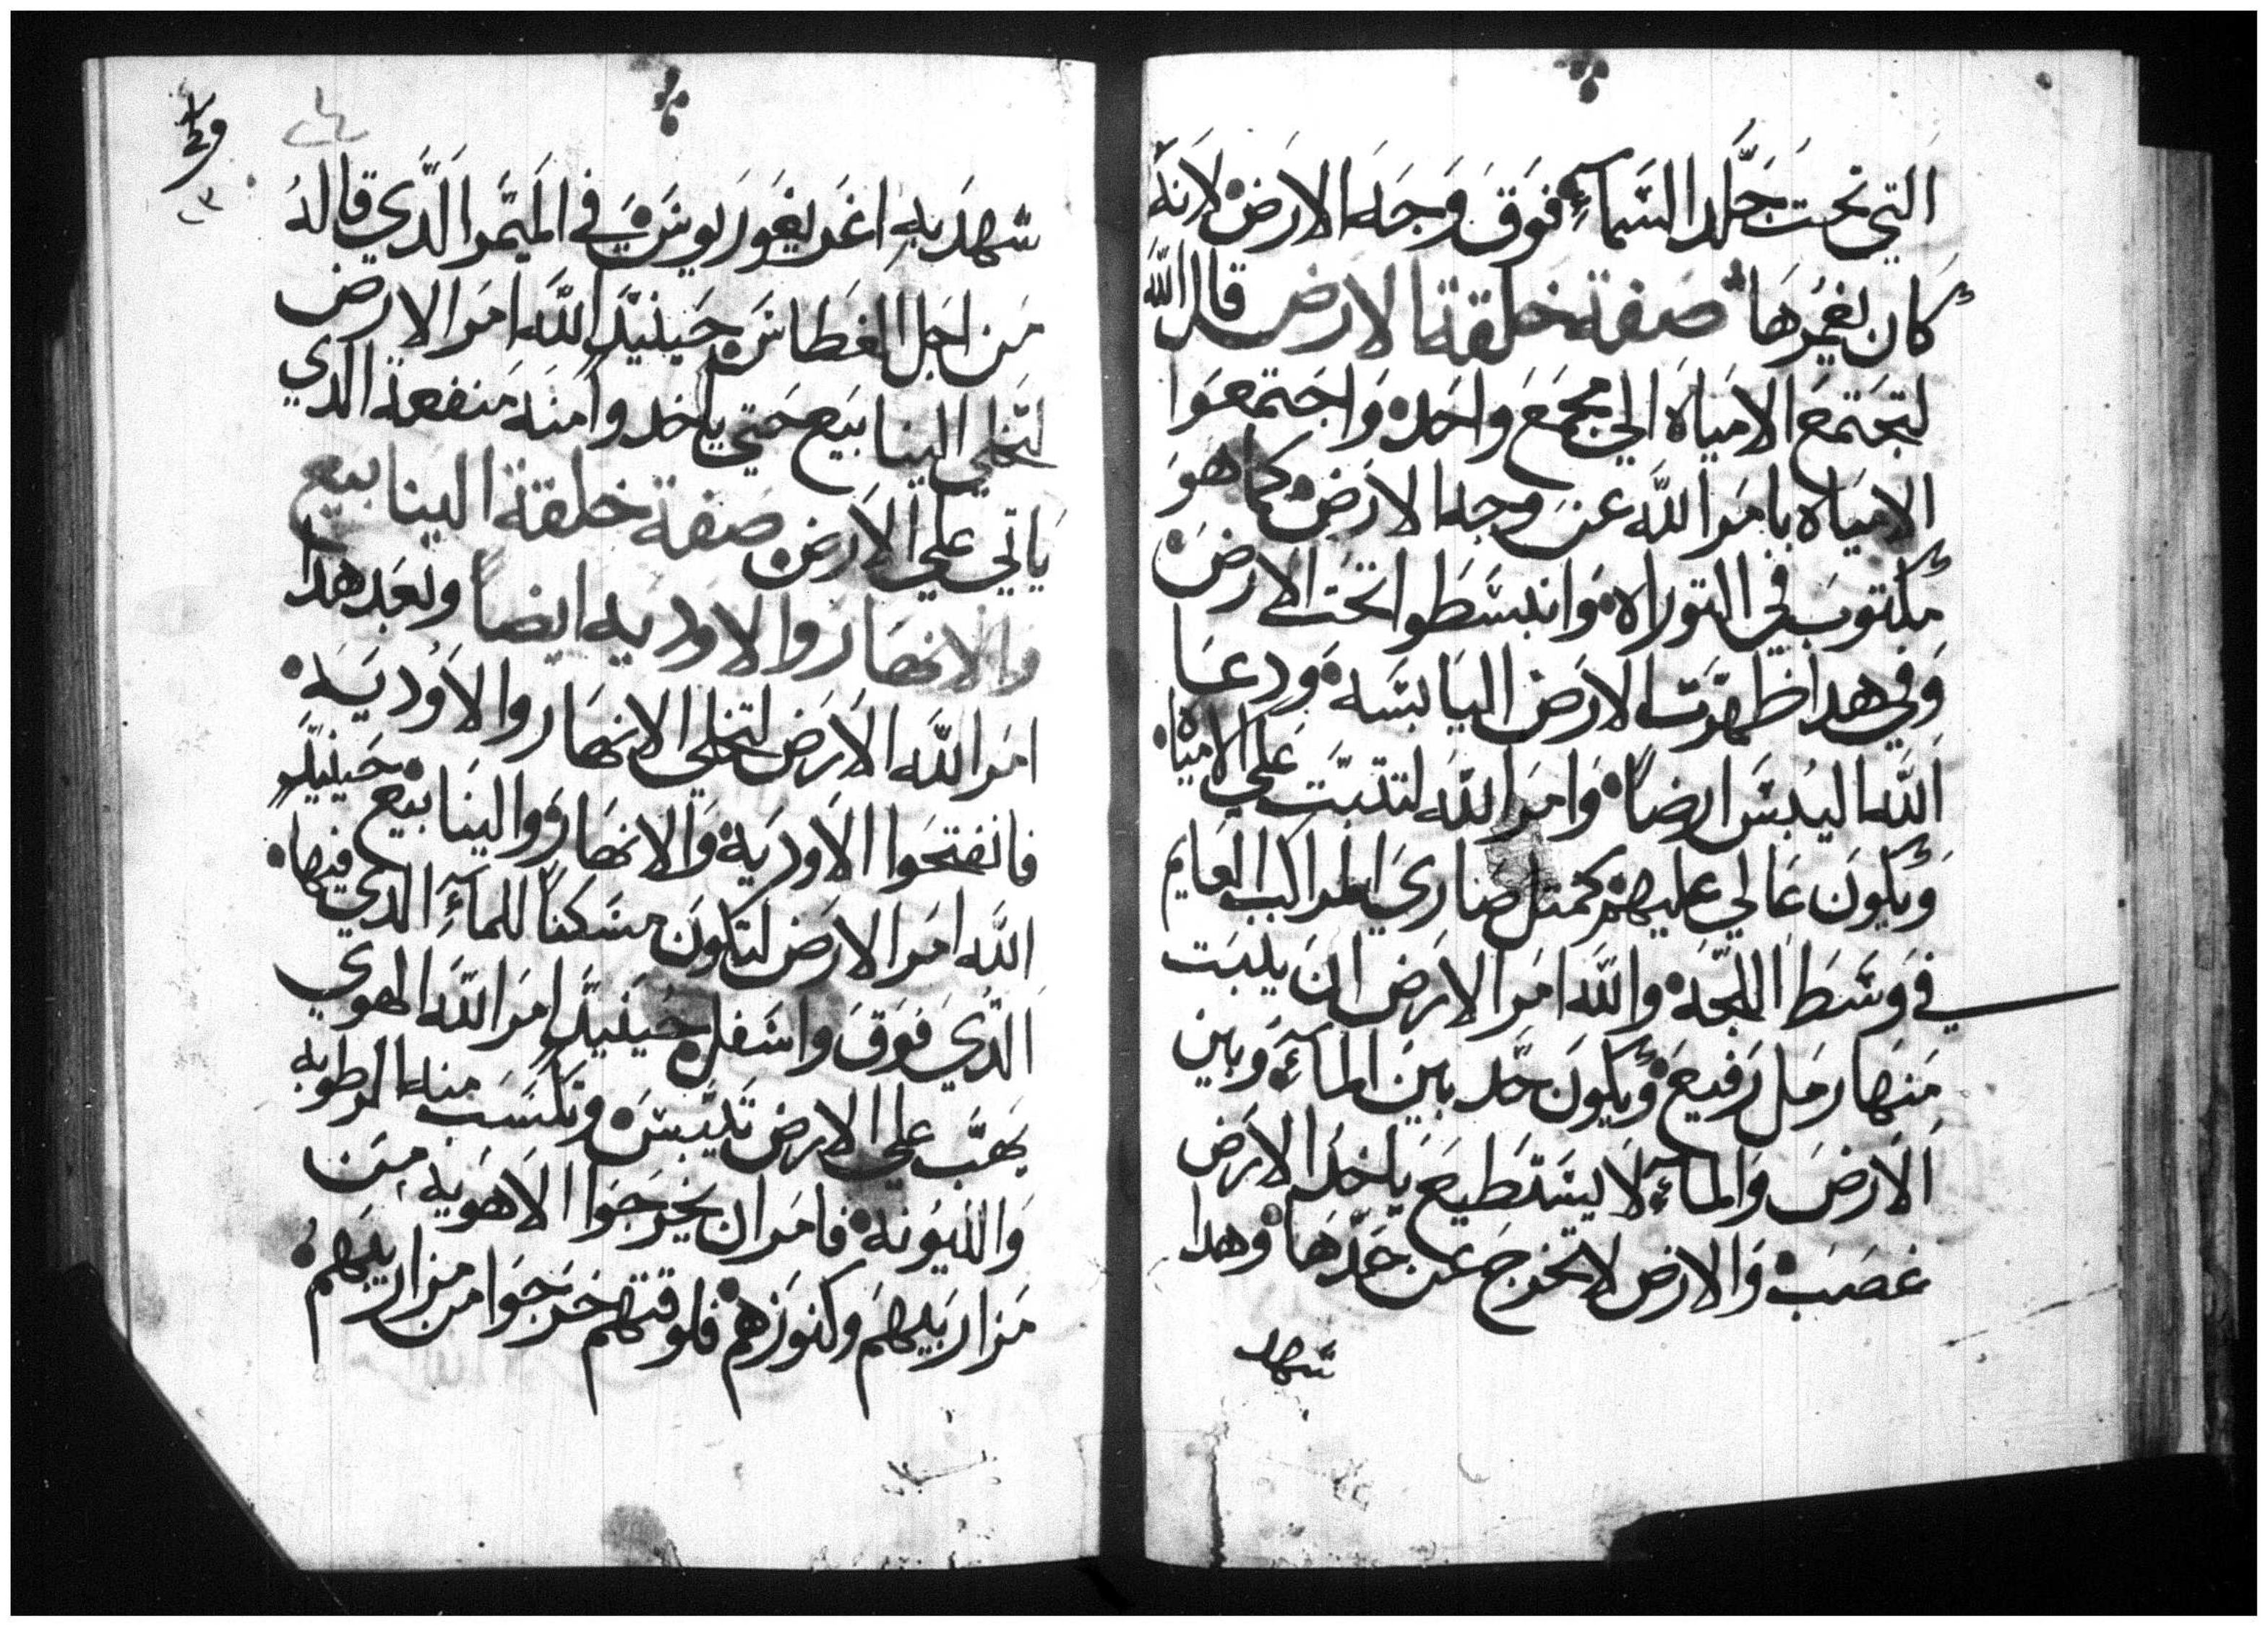 التي تحت جَلَد السَمآءِ فَوَق وَجَه الارَض لانَهُ
كان يغمُرهَا صفة خلقة الارض قال الله
لتجتمَع الامياَه الي مجمَع واحَده وَاجتمعَوا
الامياه بامَر الله عَن وجه الارَض كما هوَ
مكتوبَ في التوراه وَانبسَطوا تحَت الارضَ
وَفي هدا ظهَرَت الارَض اليَابسَه وَدعَا
اَلله اليُبسَ ارضاً وَامَر الله لتتبَت عَلي الامياه
وَيكونَ عَالي عليهم كمتل صَاري المراكب العَايم
في وَسَط اللجَه والله امَر الارَض انَ يلبَت
مَنهَا رمَل رَفيع وَيكونَ حَد بين المآءِ وَبين
اَلارَضَ وَالمآءِ لاَ يسَتطيَع ياخَد الارَض
غصَبَ وَالارض لا تخرج عن حَدّهَا وَهدا
شهد
سَهَد به اغريغوَريوسَ في الميَمر الَدي قاله
مَن اجَل الغَطاسَ حَينيدٍ الله امَر الارض
لتخلي الينابيَع حَتي ياخد وامنَه مَنفعة الدي
يَاتي علي الارَض صَفة خلقة الينابيع
والانهَار والاوديه ايضاً وبَعَد هدا
امَر الله الارَض لتخلي الانهَار والاَوديَه
فانفتحَوا الاَوديَة وَالانهَار وَالينَابيع حَينيدٍ
اَلله امَر الارَض لتكونَ مسَكناً للمآءِ الدي فيها
اَلدَي فوَقَ واسَفل حَينيدٍ امَر الله الهوي
يهَب علي الارض تَيبسَ وَتكسَب منه الرطوبه
وَالليوُنه فامَر ان يخرجَوا الاهَويه مِن
مَزاريَبهمَ وكنوزَهم فلوقتهم خَرجَوا من مزاريبَهم